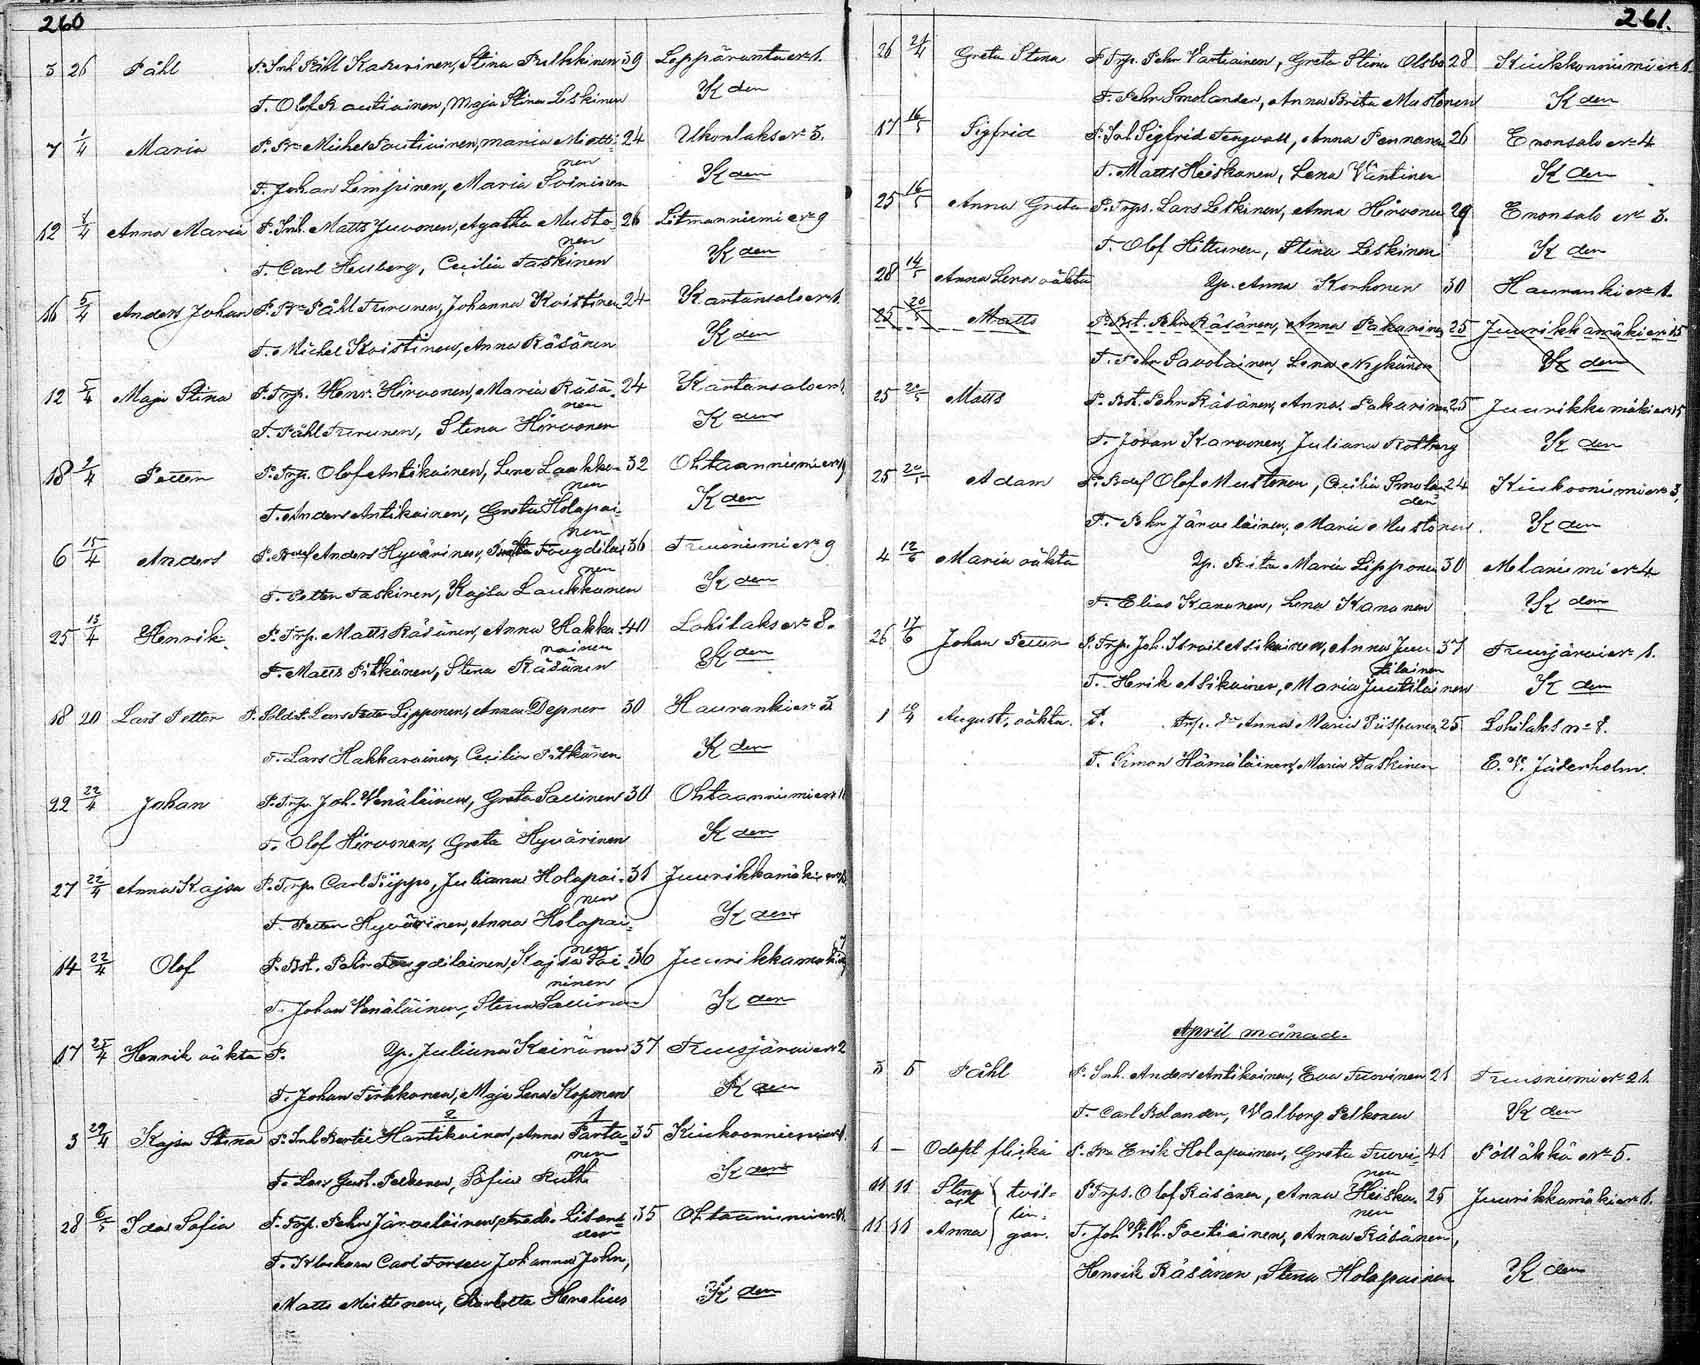 260
3 26 Påhl P. Inh. Påhl Kasurinen, Stina Pulkkinen 39 Leppäranta № 1.
T. Olof Rautiainen, Maja Stina Leskinen K den
7 1/4 Maria P. Michel Poutiainen, Maria Mietti- 24 Ukonlaks № 3.
nen
T. Johan Lempinen, Maria Soininen K den
12 4/4 Anna Maria P. Inh. Matts Juvonen, Agatha Musto 26 Litmanniemi № 9
nen
T. Carl Heuberg, Cecilia Taskinen K den
16 5/4 Anders Johan P. Påhl Turunen, Johanna Koistinen 24 Kartansalo № 1.
T. Michel Koistinen, Anna Räsänen K den
12 5/4 Maja Stina P. Trp. Henr. Hirvonen, Maria Räsä- 24 Kartansalo № 1.
nen
T. Påhl Turunen, Stina Hirvonen K den
18 9/4 Petter P. Trp. Olof Antikainen, Lena Laakko- 32 Ohtaanniemi №
nen
T. Anders Antikainen, Greta Holapai- K den
nen
6 15/4 Anders P. Anders Hyvärinen, Fougdilai 36 Tuusniemi № 9
nen
T. Petter Taskinen, Kajsa Laukkanen K den
25 15/4 Henrik P. Trp. Matts Räsänen, Anna Hakka- 40 Lohilaks № 8.
rainen
T. Matts Pitkänen, Stina Räsänen K den
18 20 Lars Petter P. Sold. Lars Lipponen, Anna Depner 30 Hauranki № 3.
T. Lars Hakkarainen, Cecilia Pitkänen K den
22 22/4 Johan P. Trp. Joh. Venäläinen, Greta Sallinen 30 Ohtaanniemi №
T. Olof Hirvonen, Greta Hyvärinen K den
27 22/4 Anna Kajsa P. Trp. Carl Piippo, Juliana Holapai- 31 Juurikkamäki №
nen
T. Petter Hyvärinen, Anna Holapai- K den
nen
14 22/4 Olof P. Bst. Pehr Fougdilainen, Kajsa Soi- 36 Juurikkamäki
ninen
T. Johan Venäläinen, Stina Sallinen K den
17 25/4 Henrik oäkta P. Yp. Juliana Keinänen 37 Tuusjärvi № 2
T. Johan Pirhkonen, Maja Lena Koponen K den
2 1
3 29/4 Kajsa Stina P. Inh. Bertil Hantikainen, Anna Parta- 35 Kiukoonniemi № 1.
nen
T. Lars Gust. Pelkonen, Sofia Ruth K den
28 6/5 Ida Sofia P. Trp. Pehr Järveläinen, Fredr. Litman 35 Ohtaanniemi №
der
T. Klockarn Carl Forsell Johanna John,
Matts Miettinen, Charlotta Henelius K den
261.
26 21/4 Greta Stina P. Trp. Pehr Vartiainen, Greta Stina Olsbo 28 Kiukkoniemi № 1.
T. Pehr Smolander, Anna Brita Mustonen K den
17 16/5 Sigfrid P. Inh. Sigfrid Tengvall, Anna Pennanen 26 Enonsalo № 4
T. Matts Heiskanen, Lena Väntinen K den
25 16/5 Anna Greta P. Trp. Lars Leskinen, Anna Hirvonen 29 Enonsalo № 3.
T. Olof Hiltunen, Stina Leskinen K den
28 14/5 Anna Lena oäkta Yp. Anna Korhonen 30 Hauranki № 1.
25 20/5 Matts P. Bst. Pehr Räsänen, Anna Pakarinen 25 Juurikkamäki № 15
T. Pehr Savolainen, Lena Nykänen K den
25 20/5 Matts P. Bst. Pehr Räsänen, Anna Pakarinen 25 Juurikkamäki № 15
T. Jöran Karvonen, Juliana Rotberg K den
25 20/5 Adam P. Olof Mustonen, Cecilia Smolan 24 Kiukoonniemi № 3.
der
T. Pehr Järveläinen, Maria Mustonen K den
4 12/6 Maria oäkta Yp. Brita Maria Lipponen 30 Melaniemi № 4
T. Elias Kananen, Lena Kananen K den
26 17/6 Johan Petter P. Trp. Joh. Israel Asikainen, Anna Juu 37 Tuusjärvi № 1.
tilainen
T. Henrik Asikainen, Maria Juutilainen K den
1 10/4 August, oäkta. P. Trp. Anna Maria Piisparen 25 Lohilaks № 8.
T. Simon Hämäläinen, Maria Taskinen E. V. Jäderholm.
April månad.
3 5 Påhl P. Inh. Anders Antikainen, Eva Tuovinen 21 Tuusniemi № 21.
T. Carl Bolander, Walborg Pelkonen K den
1 – Odöpt flicka P. Erik Holapainen, Greta Tuovi- 41 Pölläkkä № 5.
nen
11 11 Stina tvil- P. Trp. Olof Räsänen, Anna Heiska- 25 Juurikkamäki № 1.
ock lin- nen
11 11 Anna gar. T. Joh. Vilh. Poutiainen, Anna Räsänen,
Henrik Räsänen, Stina Holapainen K den